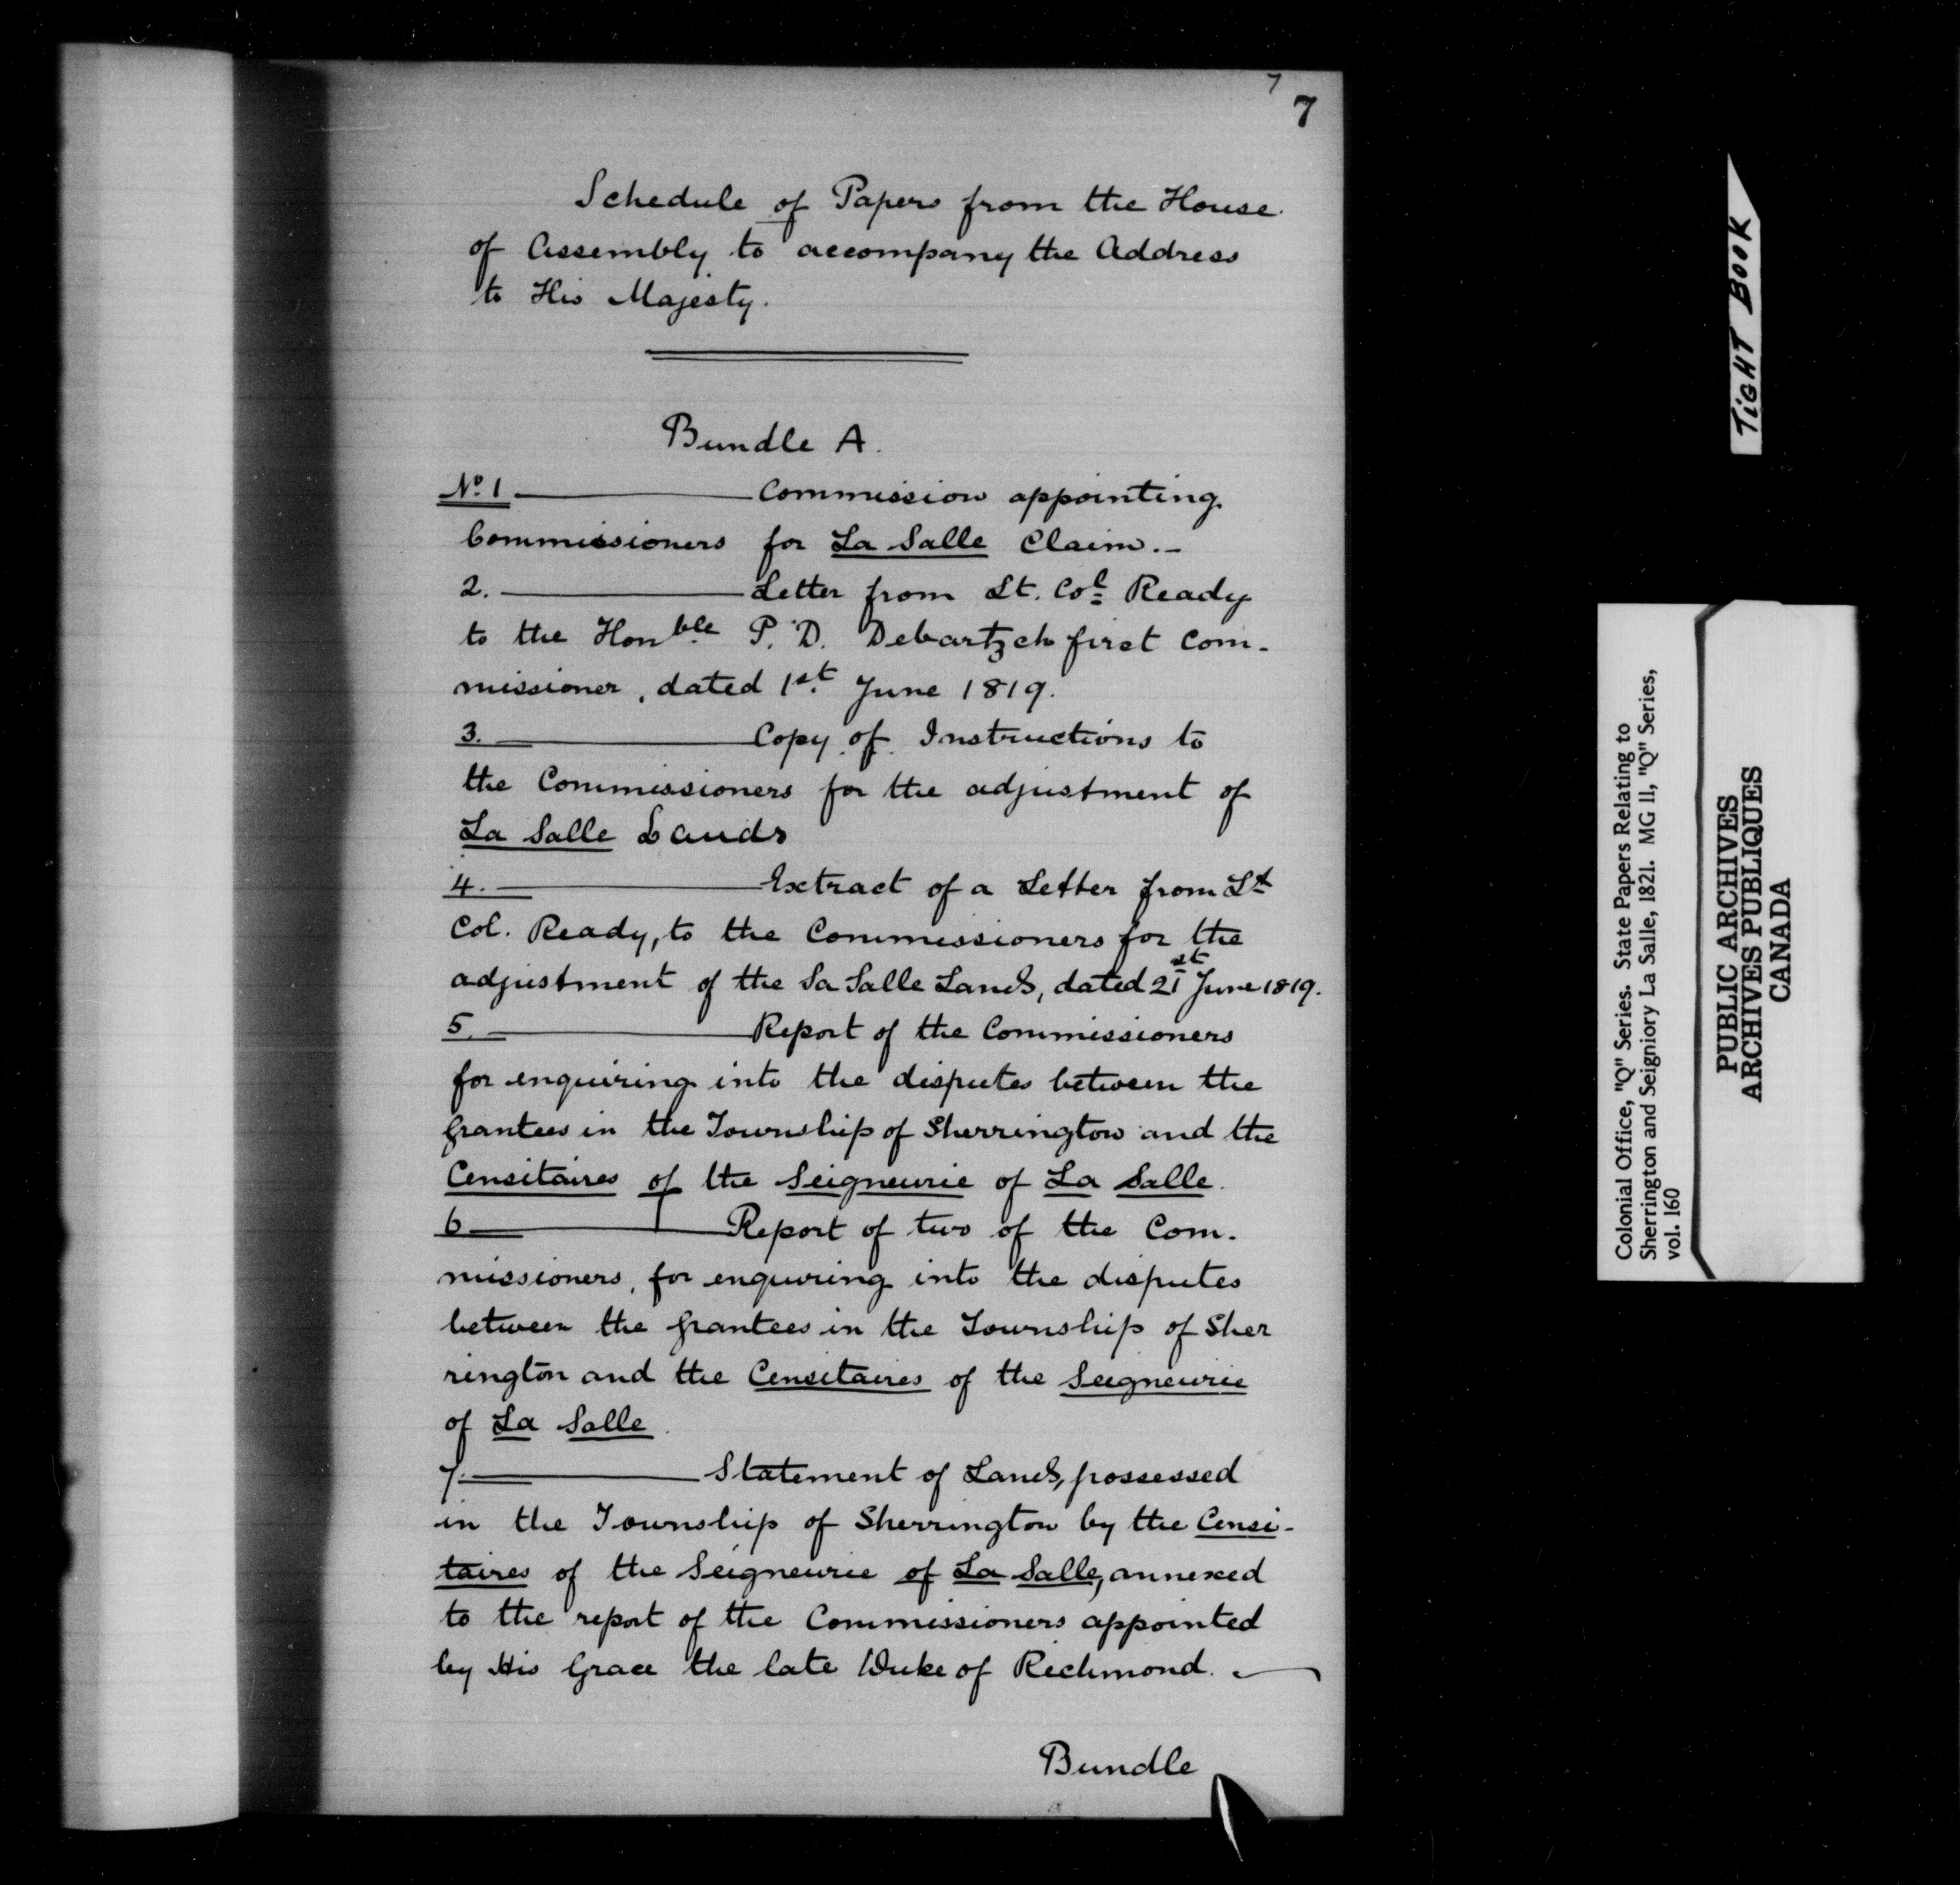 7
7
Schedule of Papers from the House
of Assembly to accompany the Address
to His Majesty.
Bundle A.
No. 1 Commission appointing
Commissioners for La Salle Claim.-
2. Letter from Lt. Col. Ready
to the Honble P. D. Debartzch first Com-
missioner, dated 1st June 1819.
3. Copy of Instructions to
the Commissioners for the adjustment of
La Salle Lands
4. Extract of a Letter from Lt
Col. Ready, to the Commissioners for the
adjustment of the La Salle Lands, dated 21st June 1819.
5. Report of the Commissioners
for enquiring into the disputes between the
grantees in the Township of Sherrington and the
Censitaires of the Seigneurie of La Salle.
6 Report of two of the Com-
missioners, for enquiring into the disputes
between the grantees in the Township of Sher
rington and the Censitaires of the Seigneurie
of La Salle.
7. Statement of Lands, possessed
in the Township of Sherrington by the Censi-
taires of the Seigneurie of La Salle, annexed
to the report of the Commissioners appointed
by His Grace the late Duke of Richmond.
Bundle
TIGHT BOOK
Colonial Office, "Q" Series. State Papers Relating to
Sherrington and Seigniory La Salle, 1821. MG 11, "Q" Series,
vol. 160
PUBLIC ARCHIVES
ARCHIVES PUBLIQUES
CANADA